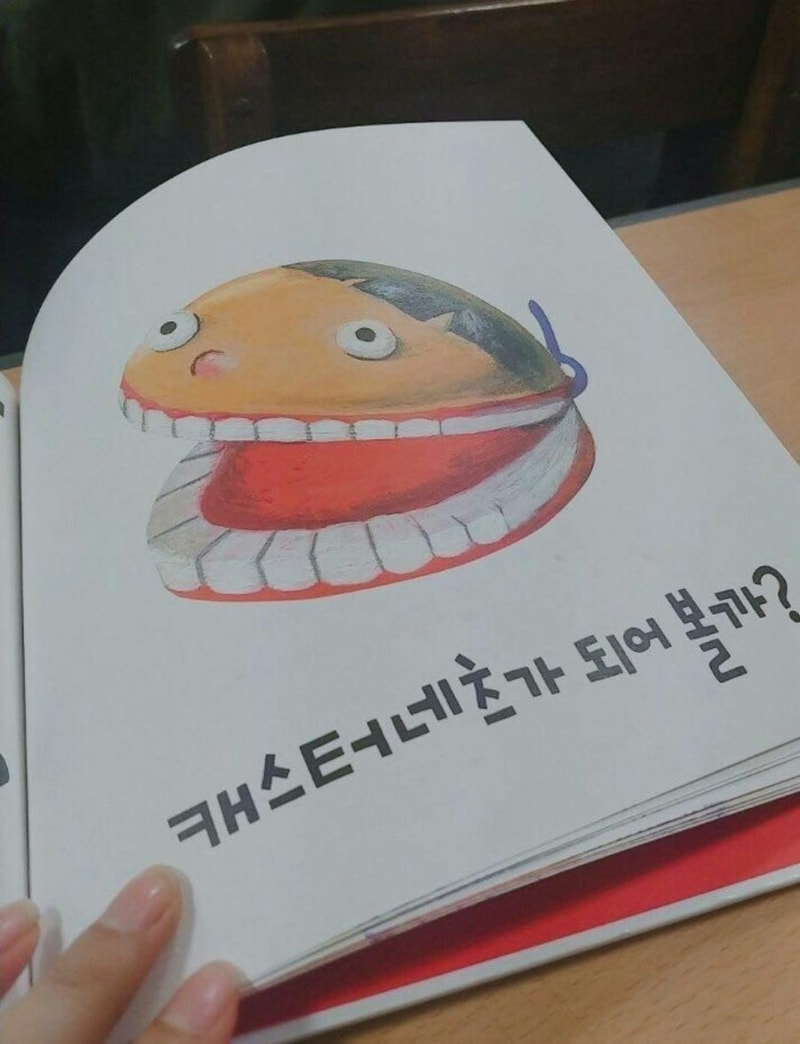 캐스터네츠가 되어 볼까?